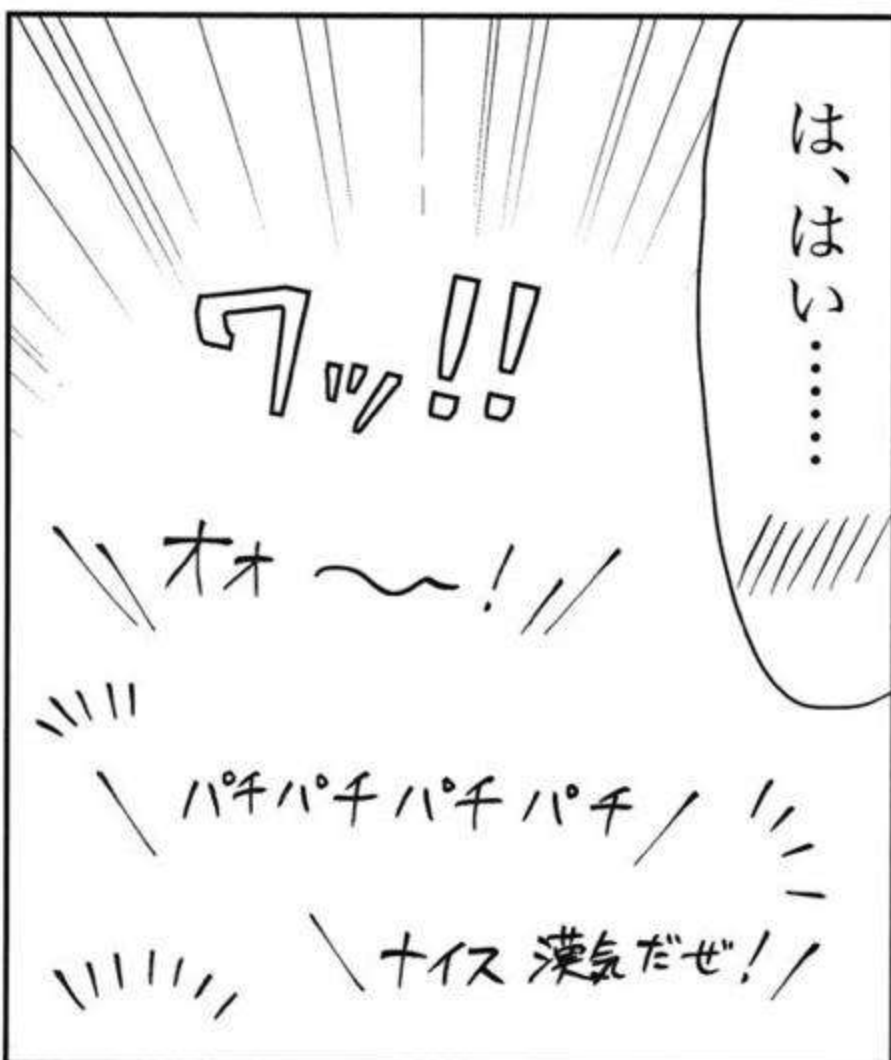 は、はい……
ワッ!!
オォ〜!
パチパチパチパチ
ナイス漢気だぜ!